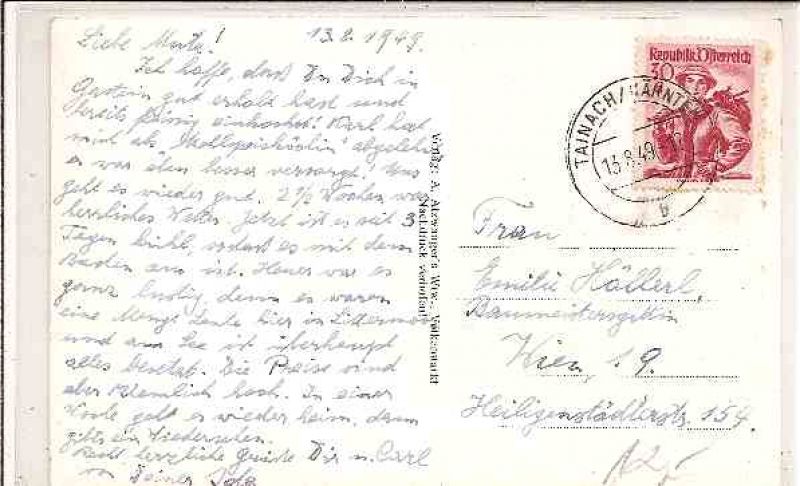 Liebe Mutz! 13.8.1949.
Ich hoffe, daß Du Dich in
Gastein gut erholt hast und
bereits fleißig einkochst! Karl hat
mich als abgelehnt
er war eben besser versorgt! Uns
geht es wieder gut. 2 ½ Wochen war
herrliches Wetter. Jetzt ist es seit 3
Tagen kühl, sodaß es mit dem
Baden aus ist. Heuer war es
ganz lustig, denn es waren
eine Menge Leute hier in
und am See ist überhaupt
alles besetzt. Die Preise sind
aber ziemlich hoch. In einer
Woche geht es wieder heim, dann
gibts ein Wiedersehen.
Recht herzliche Grüße Dir u. Carl
von Deiner
Verlag: A. Atzwanger's Wwe., Völkermarkt
Nachdruck verboten!
Republik Österreich
30
TAINACH/KÄRNTEN
13.8.49
b
Frau
Emilie Höllerl,
Baumeistersgattin
Wien 19.
Heiligenstädterstr. 154.